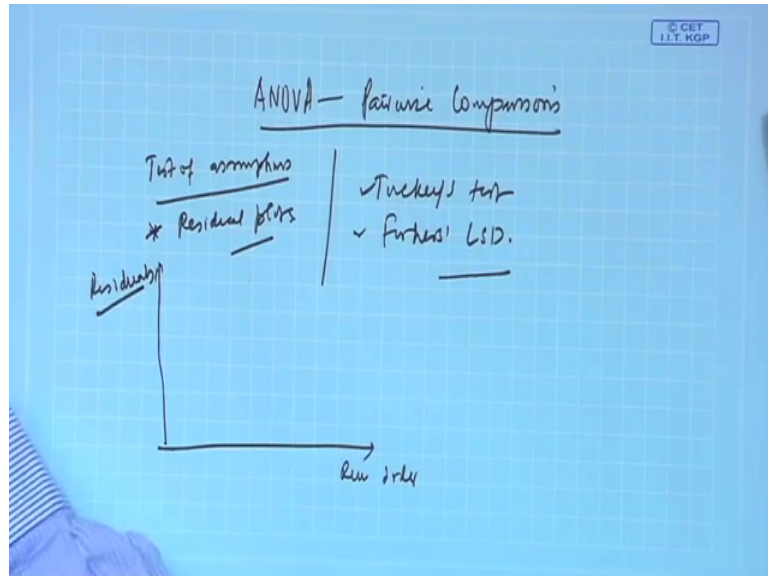 © CET
I.I.T. KGP
ANOVA — Pairwise Comparisons
Test of assumptions
* Residual plots
✓Tuckey's test
✓ Fishers' LSD.
Residuals
Run order